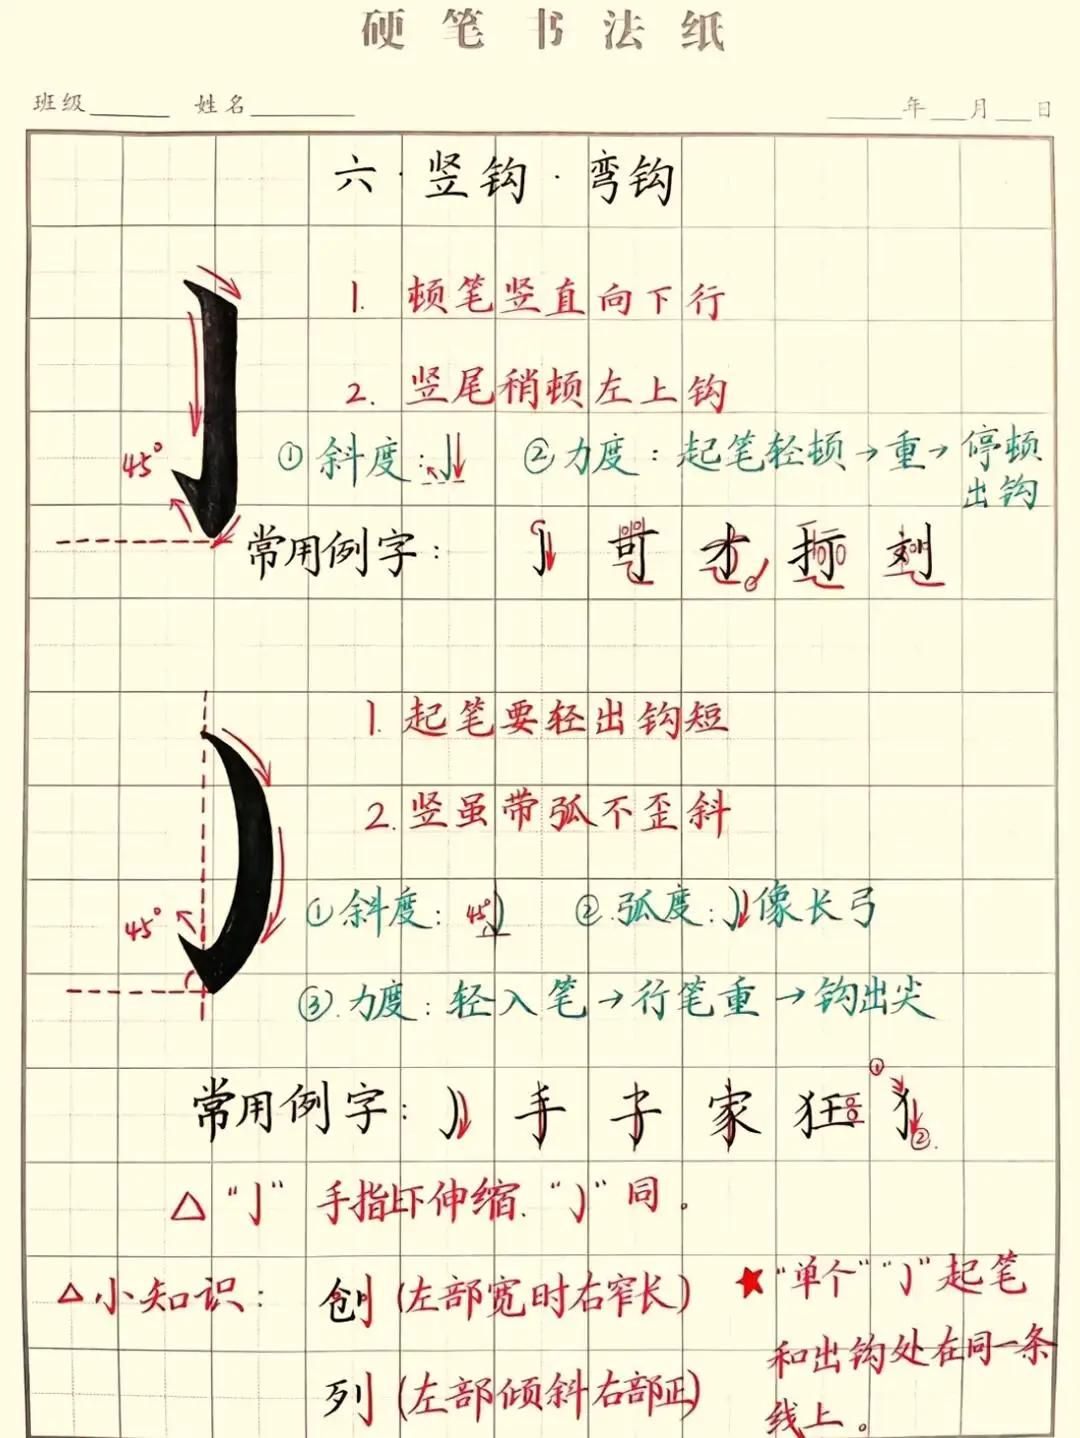 硬笔书法纸
班级 姓名 年 月 日
六·竖钩·弯钩
1. 顿笔竖直向下行
2. 竖尾稍顿左上钩
45°
①斜度:亅 ②力度:起笔轻顿→重→停顿
出钩
常用例字: 亅 可 才 打 刘
1. 起笔要轻出钩短
2. 竖虽带弧不歪斜
45°
①斜度: 45° ②.弧度: 像长弓
③.力度:轻入笔→行笔重→钩出尖
常用例字: 手 子 家 狂 犭 ① ②
△“亅” 手指上下伸缩. “㇁”同。
△小知识: 创 (左部宽时右窄长)
★“单个”“㇁”起笔
和出钩处在同一条
线上。
列 (左部倾斜右部正)